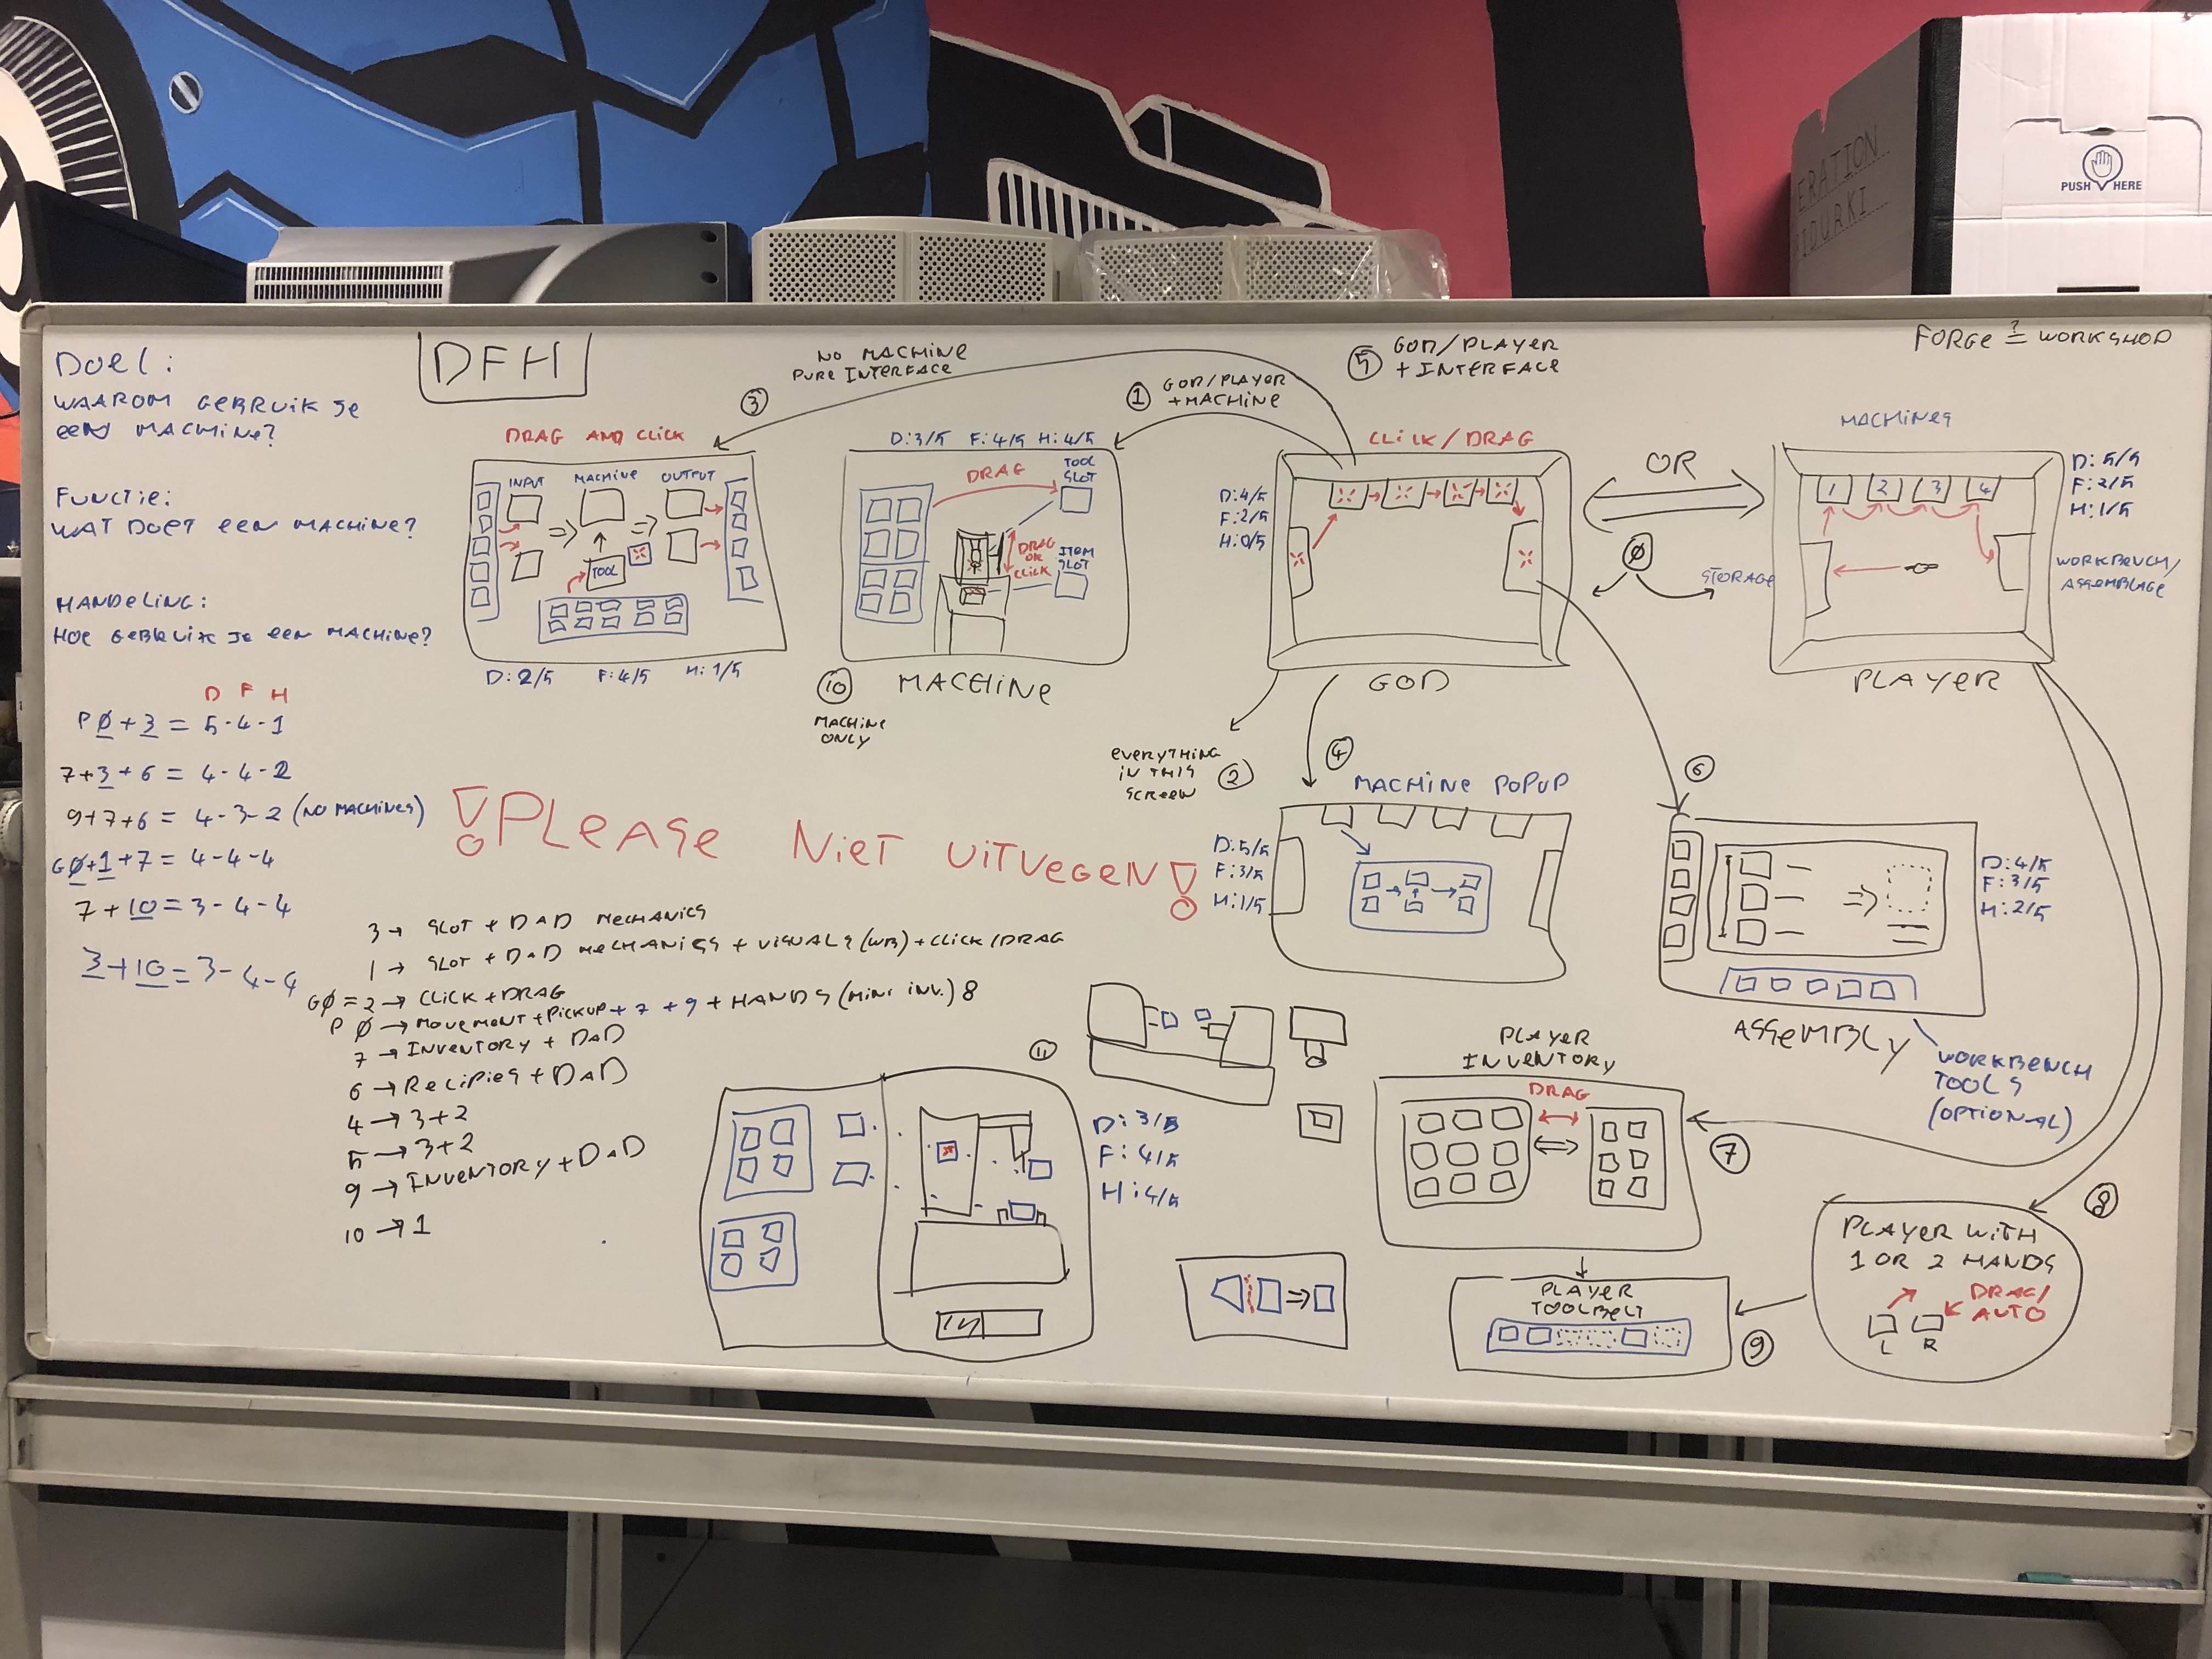 PUSH HERE
ERATION
IDURKI
DOEL:
WAAROM GEBRUIK JE
EEN MACHINE?
FUNCTIE:
WAT DOET EEN MACHINE?
HANDELING:
HOE GEBRUIK JE EEN MACHINE?
D F H
P Ø + 3 = 5-4-1
7+3+6 = 4-4-2
9+7+6 = 4-3-2 (NO MACHINES)
GØ+1+7 = 4-4-4
7+10 = 3-4-4
3+10 = 3-4-4
DFH
NO MACHINE
PURE INTERFACE
3
DRAG AND CLICK
INPUT MACHINE OUTPUT
TOOL
D: 2/5 F: 4/5 H: 1/5
1
GOD/PLAYER
+MACHINE
D:3/5 F:4/5 H:4/5
DRAG
TOOL
SLOT
DRAG
OR
CLICK
ITEM
SLOT
10
MACHINE
MACHINE
ONLY
5
GOD/PLAYER
+ INTERFACE
CLICK/DRAG
D:4/5
F:2/5
H:0/5
GOD
OR
Ø
FORGE ?= WORKSHOP
MACHINES
1 2 3 4
D: 5/5
F: 2/5
H: 1/5
STORAGE
WORKBENCH/
ASSEMBLAGE
PLAYER
EVERYTHING
IN THIS
SCREEN
2
4
MACHINE POPUP
D:5/5
F:3/5
H:1/5
6
D:4/5
F:3/5
H:2/5
ASSEMBLY
WORKBENCH
TOOLS
(OPTIONAL)
! PLEASE NIET UITVEGEN !
3 → SLOT + DAD MECHANICS
1 → SLOT + DAD MECHANICS + VISUALS (WB) + CLICK/DRAG
GØ = 2 → CLICK + DRAG
P Ø → MOVEMENT + PICKUP + 7 + 9 + HANDS (MINI INV.) 8
7 → INVENTORY + DAD
6 → RECIPIES + DAD
4 → 3+2
5 → 3+2
9 → INVENTORY + DAD
10 → 1
11
D: 3/5
F: 4/5
H: 4/5
PLAYER
INVENTORY
DRAG
7
PLAYER
TOOLBELT
9
8
PLAYER WITH
1 OR 2 HANDS
DRAG/
AUTO
L R